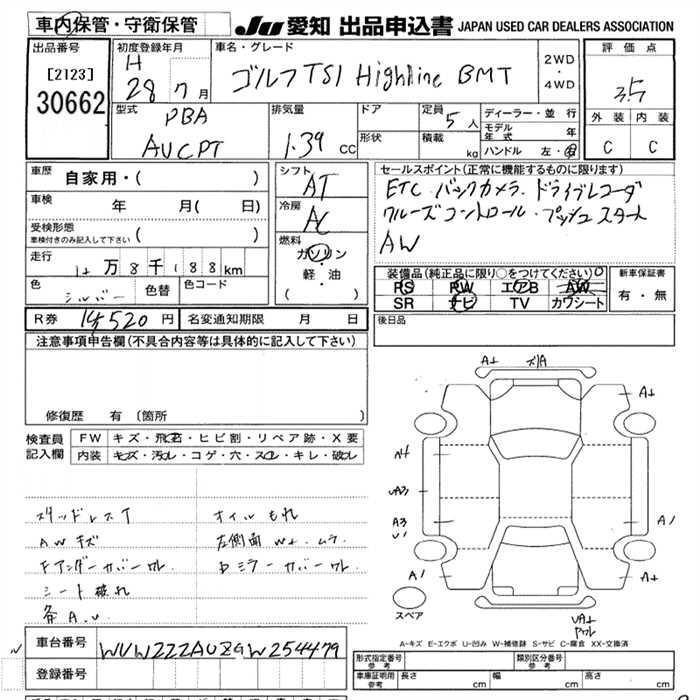 車内保管・守衛保管
JU 愛知 出品申込書 JAPAN USED CAR DEALERS ASSOCIATION
出品番号
[2123]
30662
初度登録年月
H
28 7月
車名・グレード
ゴルフTSI Highline BMT
2WD
・
4WD
評価点
3.5
外装 内装
C C
型式
PBA
AUCPT
排気量
1.39 CC
ドア
形状
定員 5人
積載 kg
ディーラー・並行
モデル年式 年
ハンドル 左・右
車歴 自家用・( )
車検 年 月( 日)
受検形態
車検付きのみ記入して下さい ( )
走行 万8千188km
色 シルバー 色替 色コード
シフト
AT
冷房
AC
燃料
ガソリン
軽・油
( )
セールスポイント(正常に機能するものに限ります)
ETC・バックカメラ・ドライブレコーダ
クルーズコントロール・プッシュスタート
AW
装備品(純正品に限り○をつけてください)
PS PW エアB AW
SR ナビ TV カワシート
新車保証書
有・無
後日品
R券 14,520円 名変通知期限 月 日
注意事項申告欄(不具合内容等は具体的に記入して下さい)
修復歴 有 (箇所
検査員
記入欄
FW キズ・飛石・ヒビ割・リペア跡・X要
内装 キズ・汚れ・コゲ・穴・スレ・キレ・破れ
スタッドレスT オイルもれ
AWキズ 左側面 W+・ムラ
Fアンダーカバーワレ Dミラーカバーワレ
シート破れ
各A.U
A+
A+
A3
A1
A1
A+
UA+
ワレ
スペア
A-キズ E-エクボ U-凹み W-補修跡 S-サビ C-腐食 XX-交換済
車台番号 WVWZZZAUZGW254479
登録番号
形式指定番号
参考
類別区分番号
参考
車庫証明用
参考
長さ cm 幅 cm 高さ cm